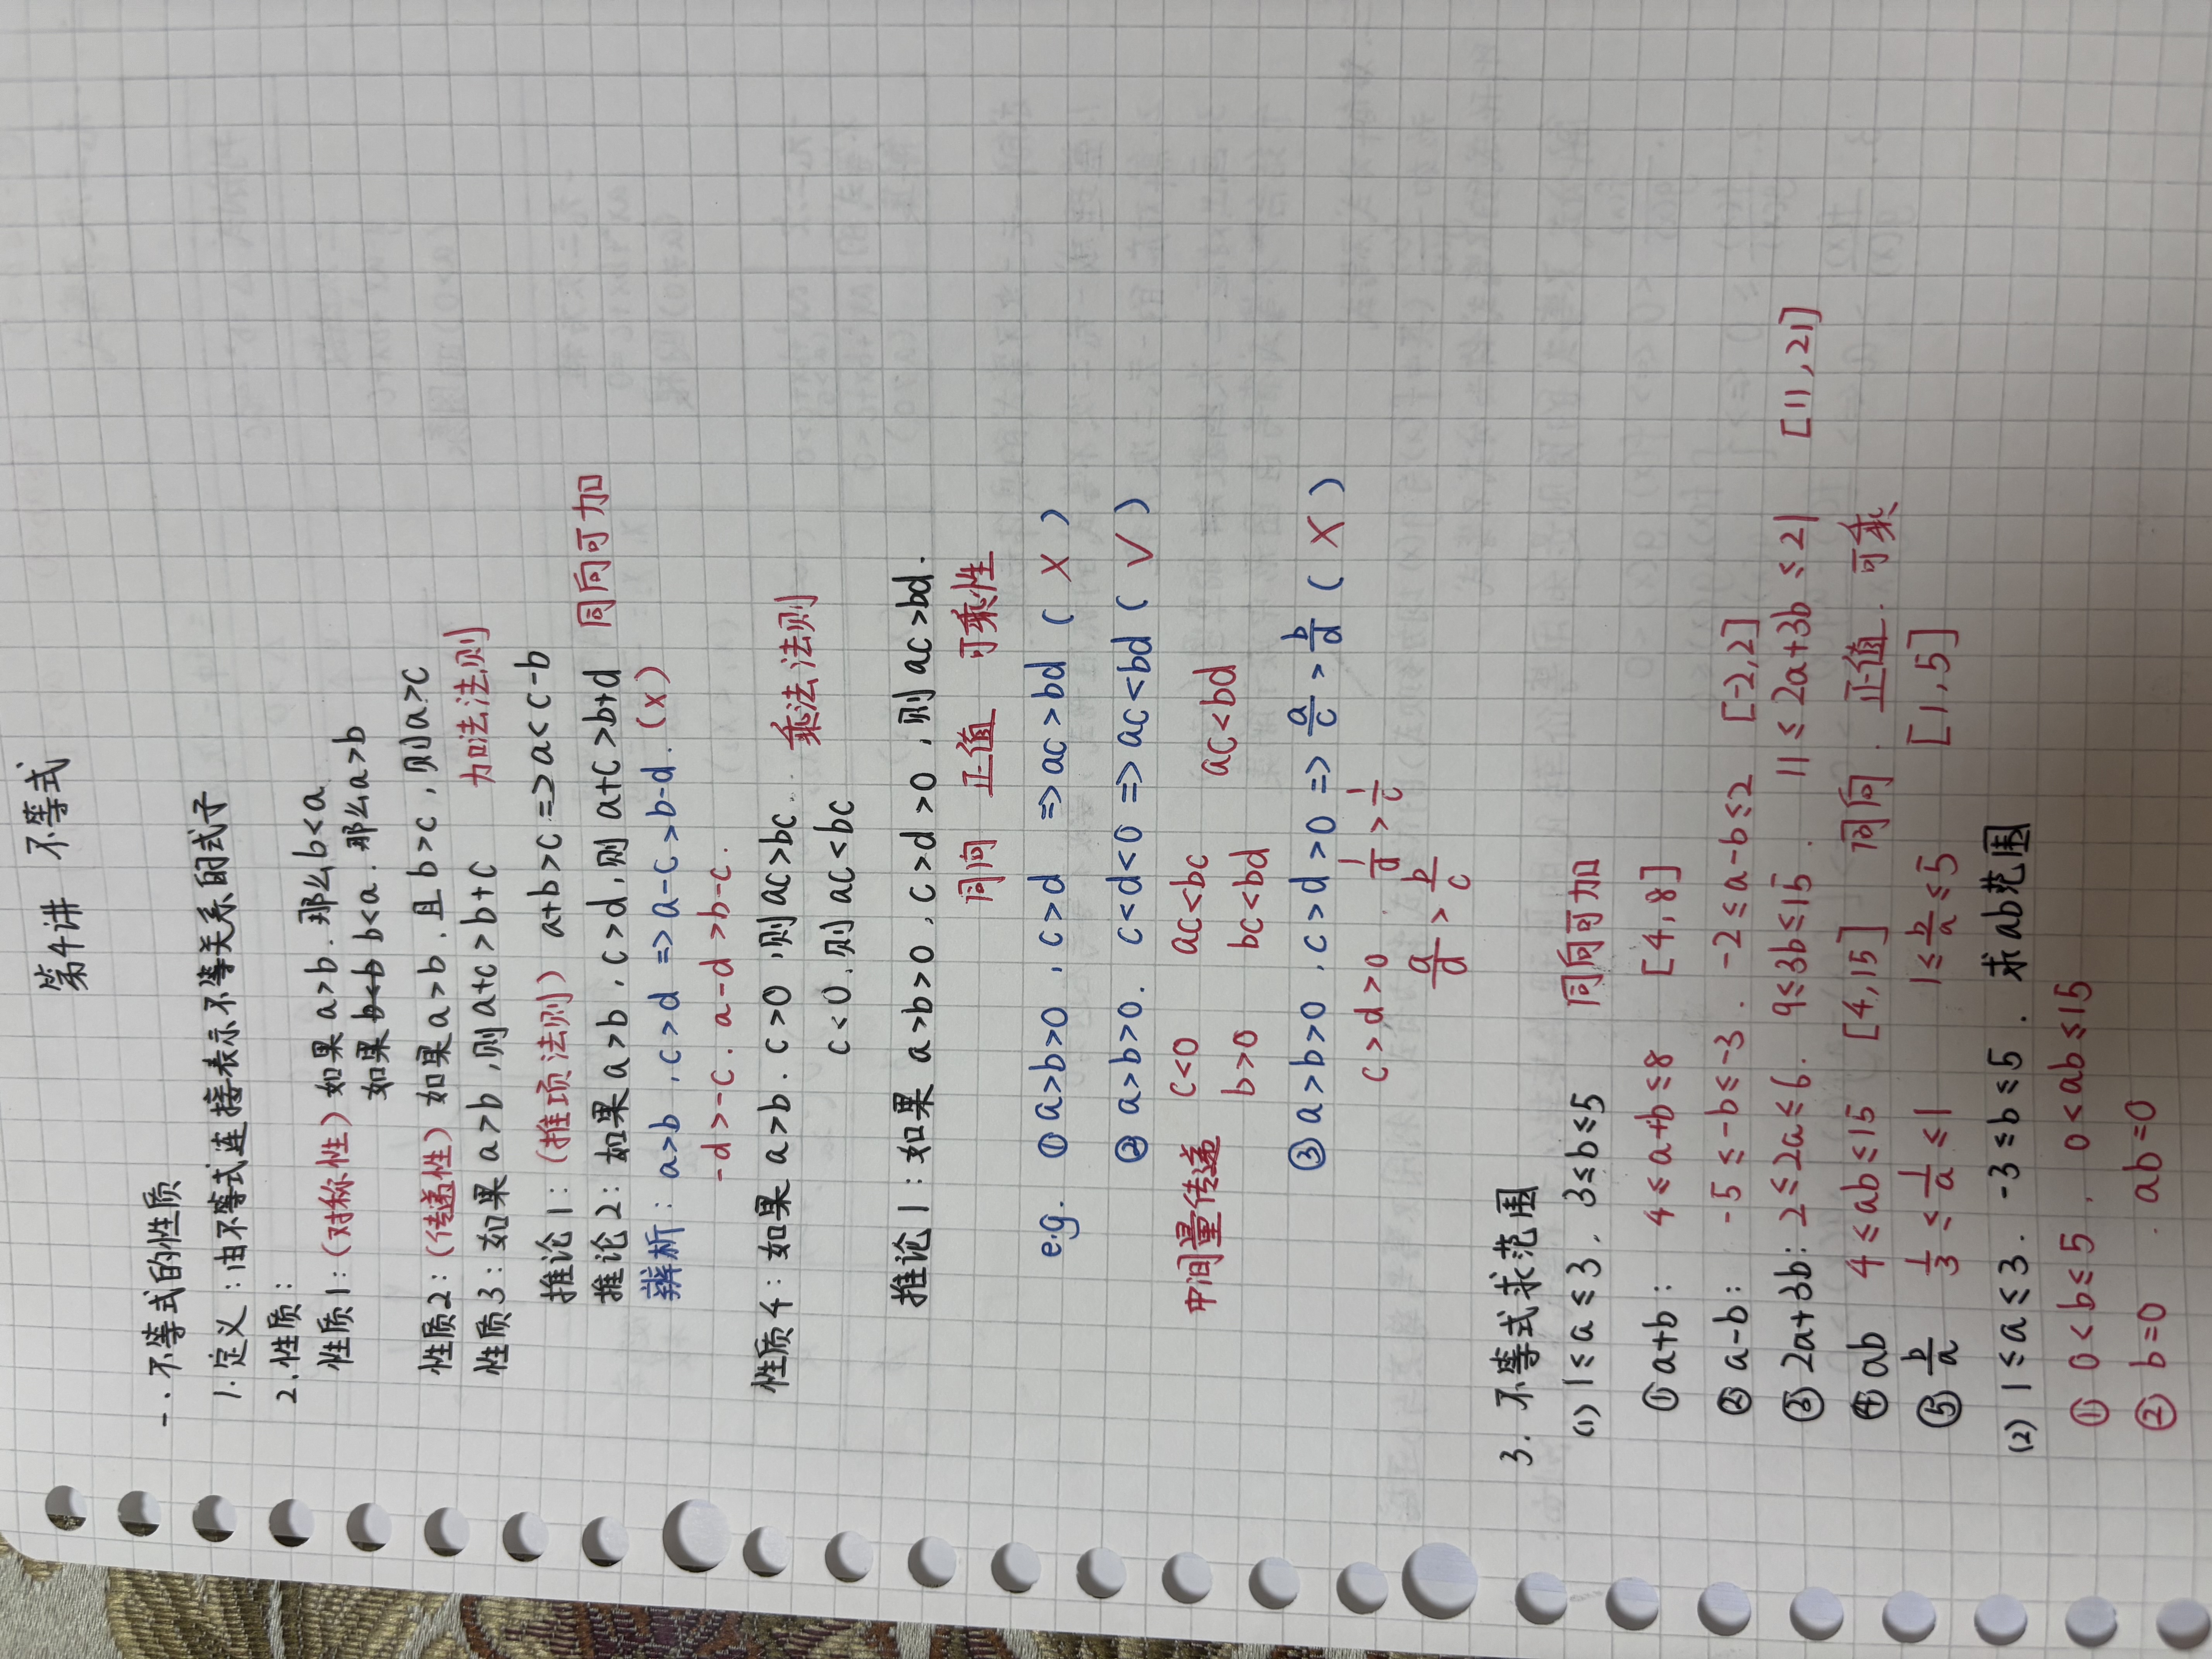 第4讲 不等式
一.不等式的性质
1.定义:由不等式连接表示不等关系的式子
2.性质:
性质1:(对称性) 如果a>b.那么b<a
如果b<b b<a.那么a>b
性质2:(传递性) 如果a>b.且b>c,则a>c
性质3:如果a>b,则a+c>b+c 加法法则
推论1:(推项法则) a+b>c=>a<c-b
推论2:如果a>b,c>d,则a+c>b+d 同向可加
辨析:a>b,c>d=>a-c>b-d.(×)
-d>-c.a-d>b-c.
性质4:如果a>b.c>0,则ac>bc. 乘法法则
c<0.则ac<bc
推论1:如果 a>b>0,c>d>0,则ac>bd.
同向 正值 可乘性
e.g. ①a>b>0,c>d =>ac>bd ( × )
②a>b>0.c<d<0=>ac<bd ( √ )
c<0 ac<bc
中间量传递 b>0 bc<bd ac<bd
③a>b>0,c>d>0=>a/c>b/d ( × )
c>d>0. 1/d>1/c
a/d>b/c
3.不等式求范围
(1)1≤a≤3.3≤b≤5 同向可加
①a+b: 4≤a+b≤8 [4,8]
②a-b: -5≤-b≤-3.-2≤a-b≤2 [-2,2]
③2a+3b:2≤2a≤6.9≤3b≤15. 11≤2a+3b≤21 [11,21]
④ab 4≤ab≤15 [4,15] 同向.正值.可乘
⑤b/a 1/3≤1/a≤1 1≤b/a≤5 [1,5]
(2) 1≤a≤3.-3≤b≤5.求ab范围
① 0<b≤5.0<ab≤15
② b=0.ab=0